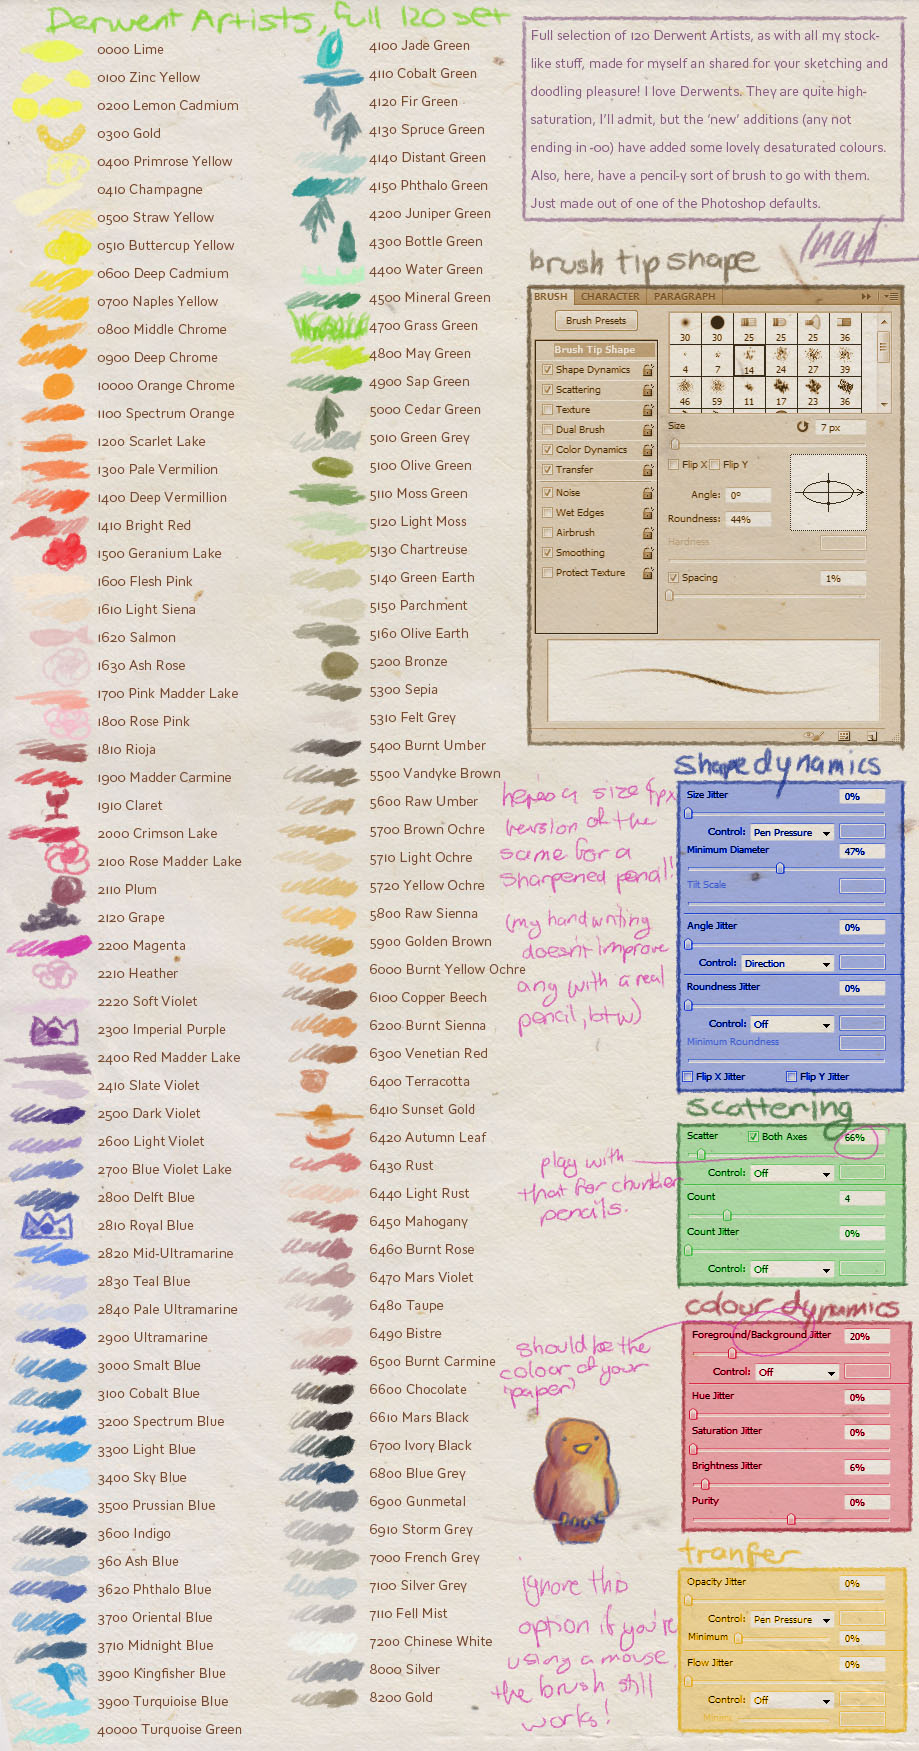 Derwent Artists, full 120 set
0000 Lime
0100 Zinc Yellow
0200 Lemon Cadmium
0300 Gold
0400 Primrose Yellow
0410 Champagne
0500 Straw Yellow
0510 Buttercup Yellow
0600 Deep Cadmium
0700 Naples Yellow
0800 Middle Chrome
0900 Deep Chrome
10000 Orange Chrome
1100 Spectrum Orange
1200 Scarlet Lake
1300 Pale Vermilion
1400 Deep Vermillion
1410 Bright Red
1500 Geranium Lake
1600 Flesh Pink
1610 Light Siena
1620 Salmon
1630 Ash Rose
1700 Pink Madder Lake
1800 Rose Pink
1810 Rioja
1900 Madder Carmine
1910 Claret
2000 Crimson Lake
2100 Rose Madder Lake
2110 Plum
2120 Grape
2200 Magenta
2210 Heather
2220 Soft Violet
2300 Imperial Purple
2400 Red Madder Lake
2410 Slate Violet
2500 Dark Violet
2600 Light Violet
2700 Blue Violet Lake
2800 Delft Blue
2810 Royal Blue
2820 Mid-Ultramarine
2830 Teal Blue
2840 Pale Ultramarine
2900 Ultramarine
3000 Smalt Blue
3100 Cobalt Blue
3200 Spectrum Blue
3300 Light Blue
3400 Sky Blue
3500 Prussian Blue
3600 Indigo
360 Ash Blue
3620 Phthalo Blue
3700 Oriental Blue
3710 Midnight Blue
3900 Kingfisher Blue
3900 Turquioise Blue
40000 Turquoise Green
4100 Jade Green
4110 Cobalt Green
4120 Fir Green
4130 Spruce Green
4140 Distant Green
4150 Phthalo Green
4200 Juniper Green
4300 Bottle Green
4400 Water Green
4500 Mineral Green
4700 Grass Green
4800 May Green
4900 Sap Green
5000 Cedar Green
5010 Green Grey
5100 Olive Green
5110 Moss Green
5120 Light Moss
5130 Chartreuse
5140 Green Earth
5150 Parchment
5160 Olive Earth
5200 Bronze
5300 Sepia
5310 Felt Grey
5400 Burnt Umber
5500 Vandyke Brown
5600 Raw Umber
5700 Brown Ochre
5710 Light Ochre
5720 Yellow Ochre
5800 Raw Sienna
5900 Golden Brown
6000 Burnt Yellow Ochre
6100 Copper Beech
6200 Burnt Sienna
6300 Venetian Red
6400 Terracotta
6410 Sunset Gold
6420 Autumn Leaf
6430 Rust
6440 Light Rust
6450 Mahogany
6460 Burnt Rose
6470 Mars Violet
6480 Taupe
6490 Bistre
6500 Burnt Carmine
6600 Chocolate
6610 Mars Black
6700 Ivory Black
6800 Blue Grey
6900 Gunmetal
6910 Storm Grey
7000 French Grey
7100 Silver Grey
7110 Fell Mist
7200 Chinese White
8000 Silver
8200 Gold
Full selection of 120 Derwent Artists, as with all my stock-
like stuff, made for myself an shared for your sketching and
doodling pleasure! I love Derwents. They are quite high-
saturation, I'll admit, but the 'new' additions (any not
ending in -00) have added some lovely desaturated colours.
Also, here, have a pencil-y sort of brush to go with them.
Just made out of one of the Photoshop defaults.
brush tip shape
BRUSH CHARACTER PARAGRAPH
Brush Presets
30 30 25 25 25 36
4 7 14 24 27 39
46 59 11 17 23 36
Brush Tip Shape
Shape Dynamics
Scattering
Texture
Dual Brush
Color Dynamics
Transfer
Noise
Wet Edges
Airbrush
Smoothing
Protect Texture
Size 7 px
Flip X Flip Y
Angle: 0°
Roundness: 44%
Hardness
Spacing 1%
here's a size 4px
version of the
same for a
sharpened pencil!
(my handwriting
doesn't improve
any with a real
pencil, btw)
shape dynamics
Size Jitter 0%
Control: Pen Pressure
Minimum Diameter 47%
Tilt Scale
Angle Jitter 0%
Control: Direction
Roundness Jitter 0%
Control: Off
Minimum Roundness
Flip X Jitter Flip Y Jitter
scattering
Scatter Both Axes 66%
Control: Off
Count 4
Count Jitter 0%
Control: Off
play with
that for chunkier
pencils.
colour dynamics
Foreground/Background Jitter 20%
Control: Off
Hue Jitter 0%
Saturation Jitter 0%
Brightness Jitter 6%
Purity 0%
should be the
colour of your
'paper'
tranfer
Opacity Jitter 0%
Control: Pen Pressure
Minimum 0%
Flow Jitter 0%
Control: Off
ignore this
option if you're
using a mouse,
the brush still
works!